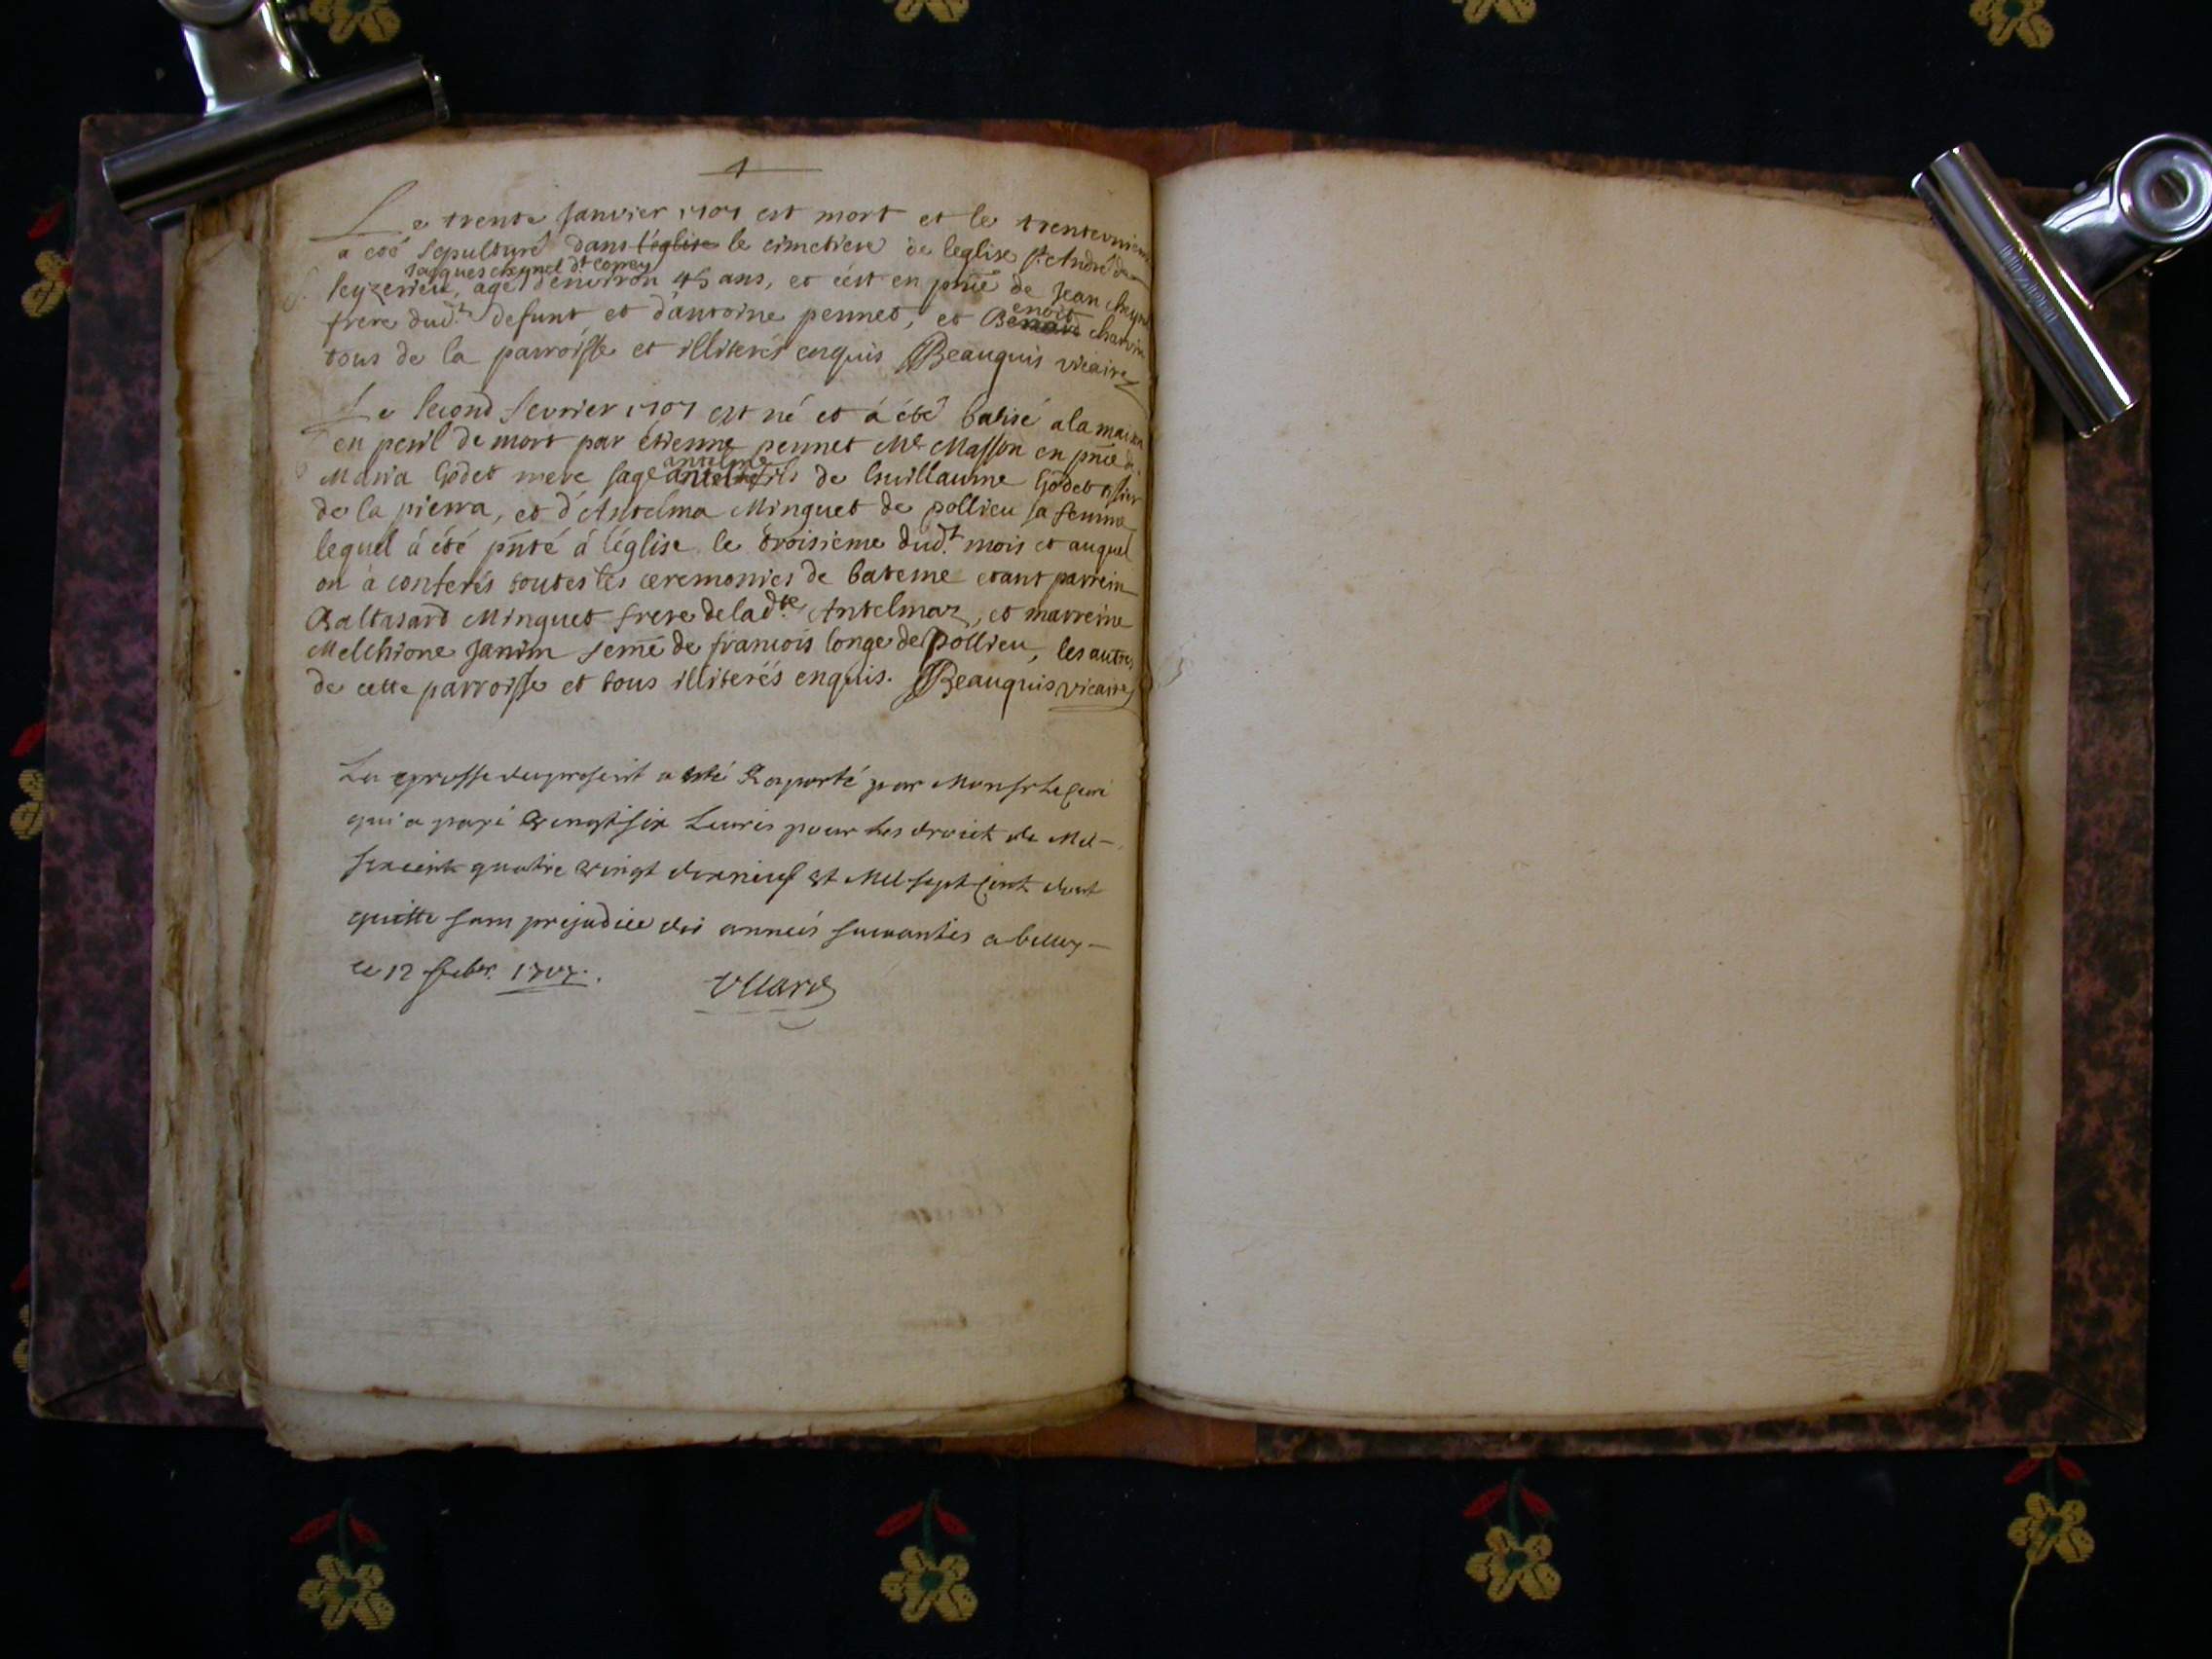 Le trente Janvier 1707 est mort et le trenteunieme
a eté sepulturé dans l'eglise le cimetiere de leglise st André de
Jacques cheynel dt
Ceyzerieu, agé denviron 45 ans, et cest en pnce de Jean cheynel
frere dudt defunt et d'antoine pennet, et Benoit charvin
tous de la parroisse et illiterés enquis Beauquis vicaire
Le second fevrier 1707 est né et à été batisé a la maison
en peril de mort par étienne pennet Me Masson en pnce de
Maria Godet mere sage antelme fils de Guillaume Godet
de la pierra, et d'Antelma Minguet de pollieu sa femme
lequel à été pnté à l'église le troisieme dudt mois et auquel
on à conferés toutes les ceremonies de bateme etant parrein
Baltasard Minguet frere de ladte Antelmaz, et marreine
Melchione Janin feme de francois longe de pollieu, les autres
de cette parroisse et tous illiterés enquis. Beauquis vicaire
La grosse du present a esté Raporté par Monsr le Curé
qui a payé vingt six Livres pour les droict de Mil
six cent quatre vingt dixneuf et Mil sept Cent dont
quitte sans prejudice des années suivantes a belley
ce 12 febr. 1707.